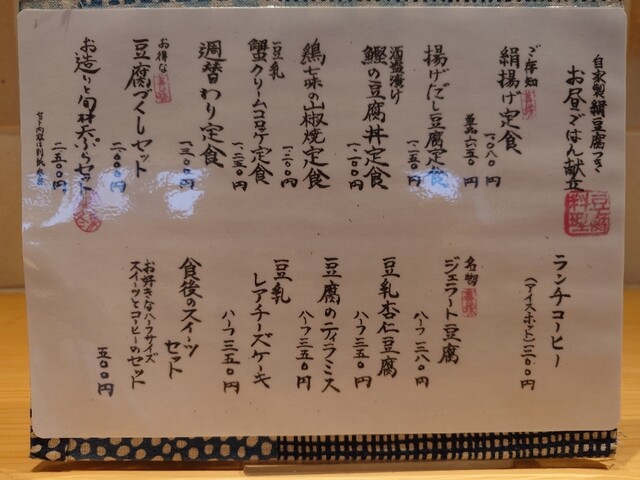 自家製絹豆腐つき
お昼ごはん献立
ご存知
絹揚げ定食
一・〇八〇円
単品六五〇円
揚げだし豆腐定食
一・一五〇円
酒盗漬け
鰹の豆腐丼定食
一・二〇〇円
鶏七味の山椒焼定食
一・二〇〇円
豆乳
蟹クリームコロッケ定食
一・二三〇円
週替わり定食
一・三〇〇円
お得な
豆腐づくしセット
二・六〇〇円
お造りと旬材天ぷらセット
二・五〇〇円
ランチコーヒー
(アイス・ホット)二〇〇円
名物
ジェラート豆腐
ハーフ三八〇円
豆乳杏仁豆腐
ハーフ三五〇円
豆腐のティラミス
ハーフ三五〇円
豆乳
レアチーズケーキ
ハーフ三五〇円
食後のスイーツ
セット
お好きなハーフサイズ
スイーツとコーヒーのセット
五〇〇円